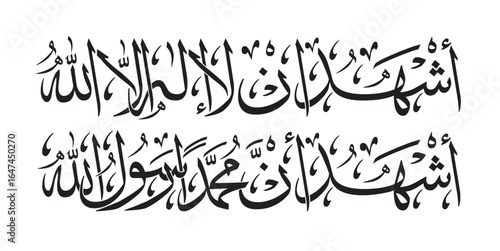 أشهد ان لا إله إلا الله
أشهد أن محمدا رسول الله
Adobe Stock | #1647450270